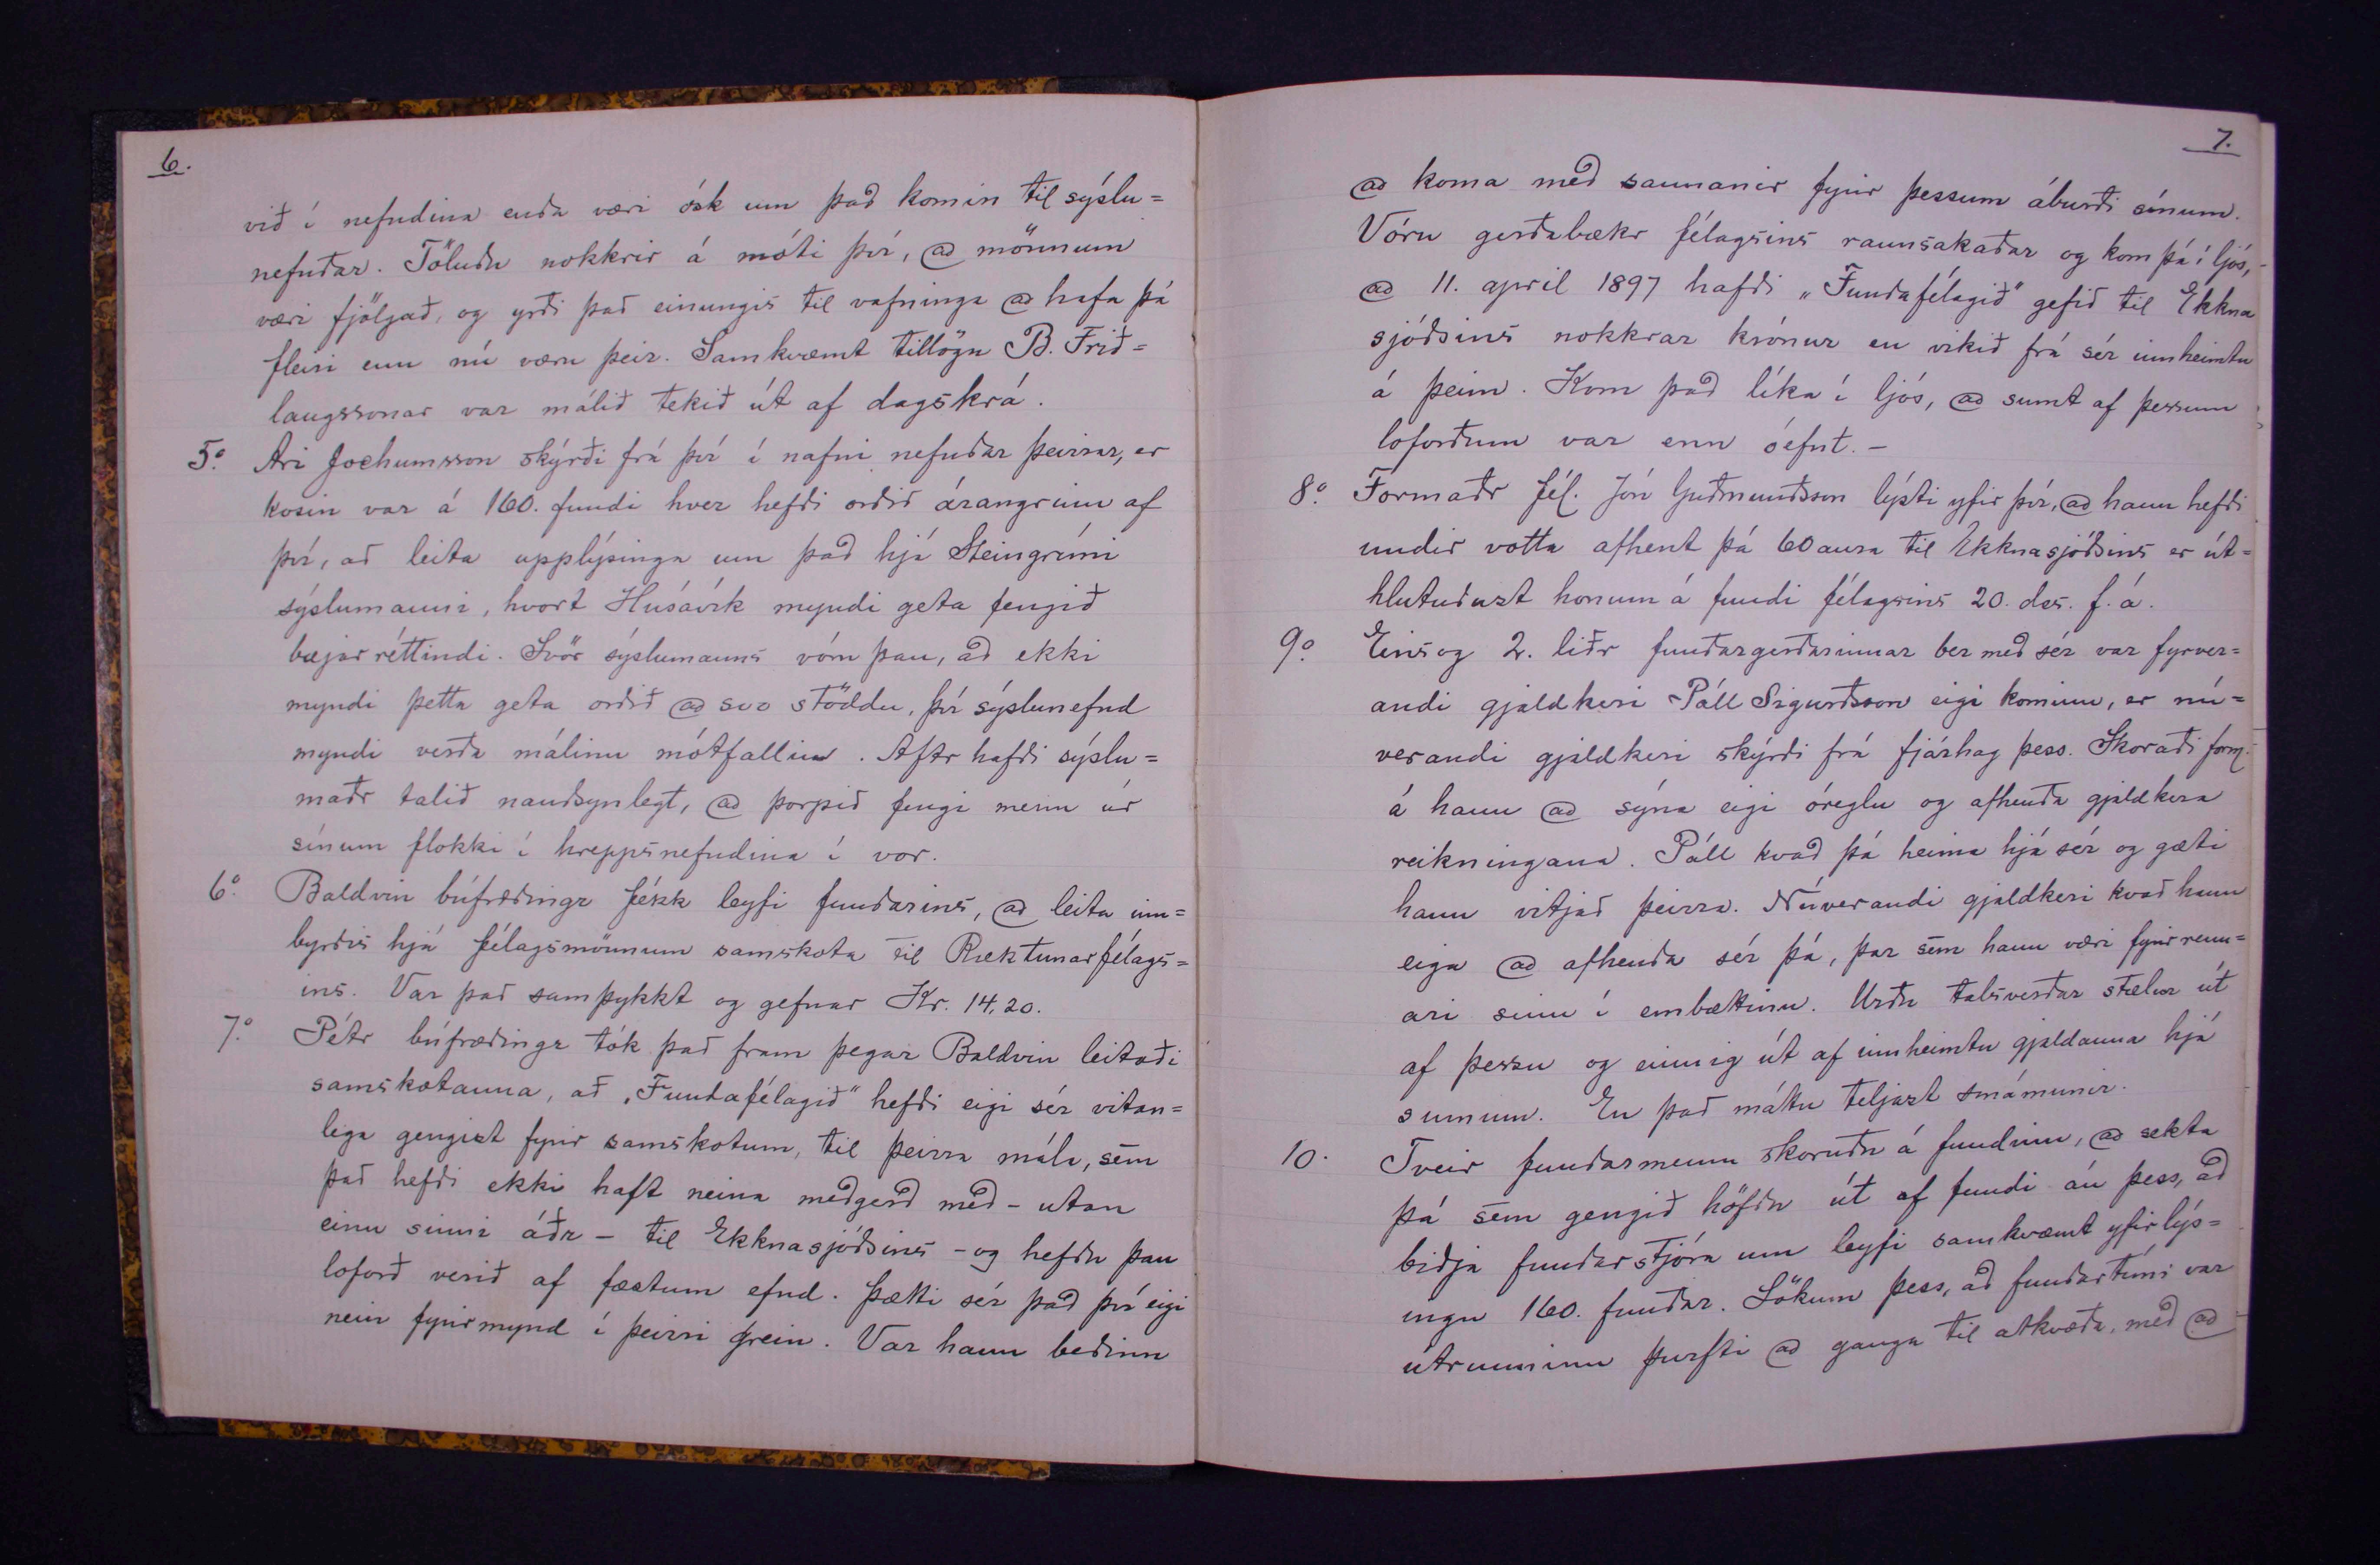 6.
við í nefndina enda væri ósk um það komin til sýslu=
nefndar. Töluðu nokkrir á móti því, @ mönnum
væri fjölgað, og yrði það einungis til vafninga @ hafa þá
fleiri enn nú væru þeir. Samkvæmt tillögu B. Frið=
laugssonar var málið tekið út af dagskrá.
5.° Ari Jochumsson skýrði frá því í nafni nefndar þeirrar, er
kosin var á 160. fundi hver hefði orðið árangrinn af
því, að leita upplýsinga um það hjá Steingrími
sýslumanni, hvort Húsávík myndi geta fengið
bæjarréttindi. Svör sýslumanns vóru þau, að ekki
myndi þetta geta orðið @ svo stöddu, því sýslunefnd
myndi verða málinu mótfallin. Aftr hafði sýslu=
maðr talið nauðsynlegt, @ þorpið fengi menn úr
sínum flokki í hreppsnefndina í vor.
6.° Baldvin búfræðingr fékk leyfi fundarins, @ leita inn=
byrðis hjá félagsmönnum samskota til Ræktunarfélags=
ins. Var það samþykkt og gefnar Kr. 14,20.
7.° Pétr búfræðingr tók það fram þegar Baldvin leitaði
samskotanna, að „Fundafélagið" hefði eigi sér vitan=
lega gengizt fyrir samskotum, til þeirra mála, sem
það hefði ekki haft neina meðgerð með - utan
einu sinni áðr - til Ekknasjóðsins - og hefðu þau
loforð verið af fæstum efnd. Þætti sér það því eigi
nein fyrirmynd í þeirri grein. Var hann beðinn
7.
@ koma með sannanir fyrir þessum áburði sínum.
Vóru gerðabækr félagsins rannsakaðar og kom þá í ljós,
@ 11. apríl 1897 hafði „Fundafélagið" gefið til Ekkna
sjóðsins nokkrar krónur en vikið frá sér innheimtu
á þeim. Kom það líka í ljós, @ sumt af þessum
loforðum var enn óefnt. -
8.° Formaðr fél. Jón Guðmundsson lýsti yfir því, @ hann hefði
undir votta afhent þá 60 aura til Ekknasjóðsins er út=
hlutuðuzt honum á fundi félagsins 20. des. f. á.
9.° Eins og 2. liðr fundargerðarinnar ber með sér var fyrver=
andi gjaldkeri Páll Sigurðsson eigi kominn, er nú=
verandi gjaldkeri skýrði frá fjárhag þess. Skoraði form.
á hann @ sýna eigi óreglu og afhenda gjaldkera
reikningana. Páll kvað þá heima hjá sér og gæti
hann vitjað þeirra. Núverandi gjaldkeri kvað hann
eiga @ afhenda sér þá, þar sem hann væri fyrirrenn=
ari sinn í embættinu. Urðu talsverðar stælur út
af þessu og einnig út af innheimtu gjaldanna hjá
sumum. En það máttu teljazt smámunir.
10. Tveir fundarmenn skoruðu á fundinn, @ sekta
þá sem gengið höfðu út af fundi án þess, að
biðja fundarstjóra um leyfi samkvæmt yfirlýs=
ingu 160. fundar. Sökum þess, að fundartími var
útrunninn þurfti @ ganga til atkvæða, með @